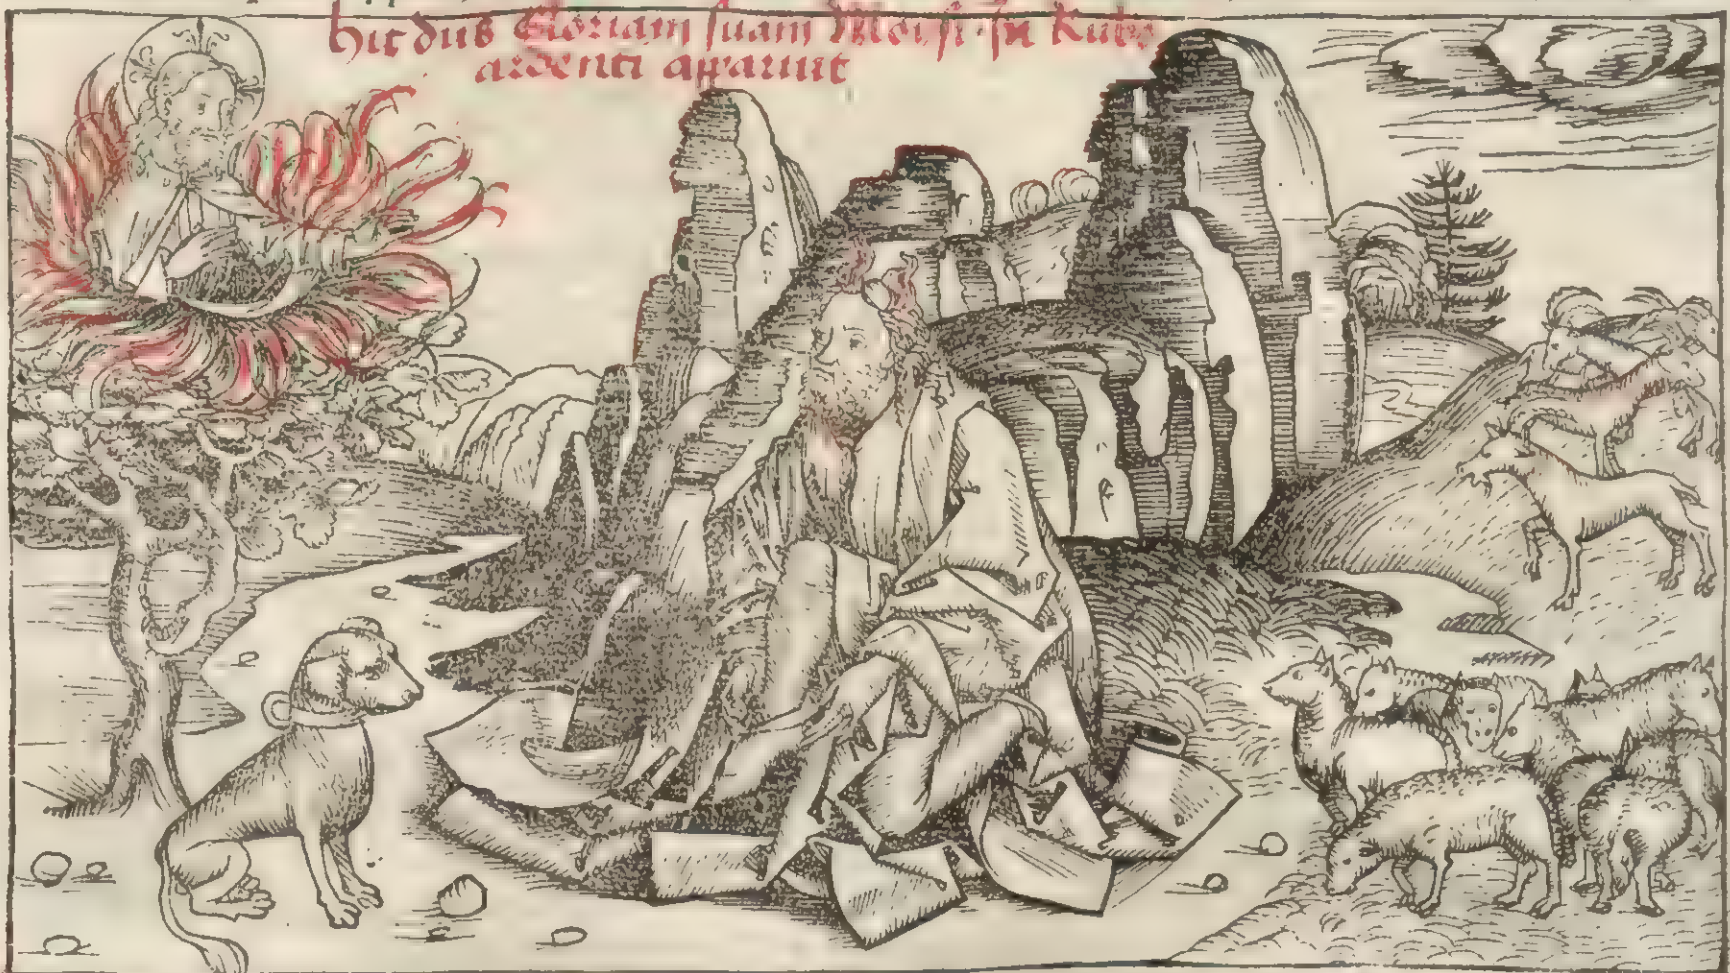 hic dns Gloriam suam Moisi in Rubo
ardenti apparuit